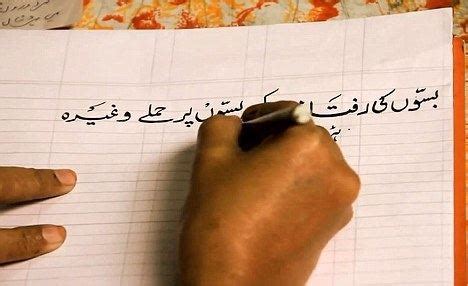 بسوں کی رفتا کے بسوں پر حملے وغیرہ